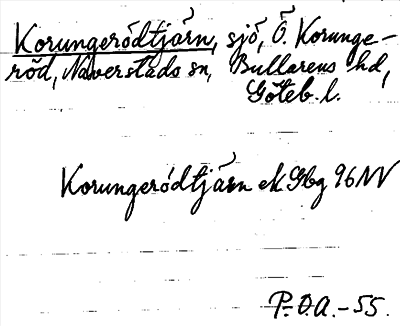 Korungerödtjärn, sjö, Ö. Korunge-
röd, Naverstads sn, Bullarens hd,
Göteb. l.
Korungerödtjärn ek Gbg 96 NV
P.O.A.-55.